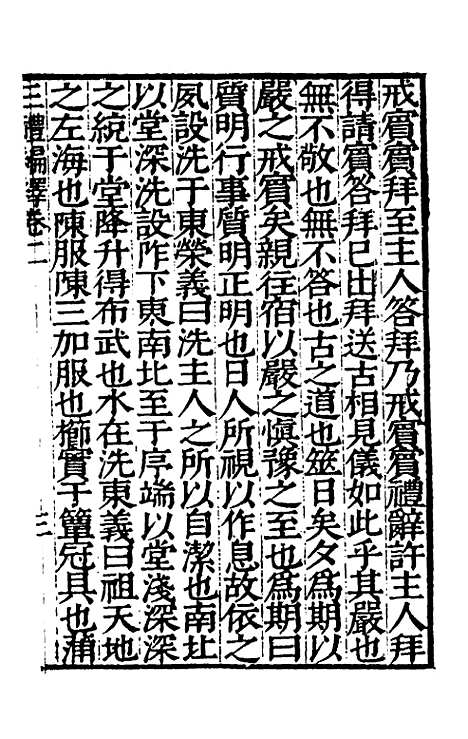 戒賓賓拜至主人答拜乃戒賓賓禮辭許主人拜
得請賓答拜巳出拜送古相見儀如此乎其嚴也
無不敬也無不答也古之道也筮日矣夕為期以
嚴之戒賓矣親往宿以嚴之慎豫之至也為期曰
質明行事質明正明也日人所視以作息故依之
夙設洗于東榮義曰洗主人之所以自潔也南北
以堂深洗設阼下東南北至于序端以堂淺深深
之統于堂降升得布武也水在洗東義曰祖天地
之左海也陳服陳三加服也櫛實于簞冠具也蒲
三禮編繹卷二
三